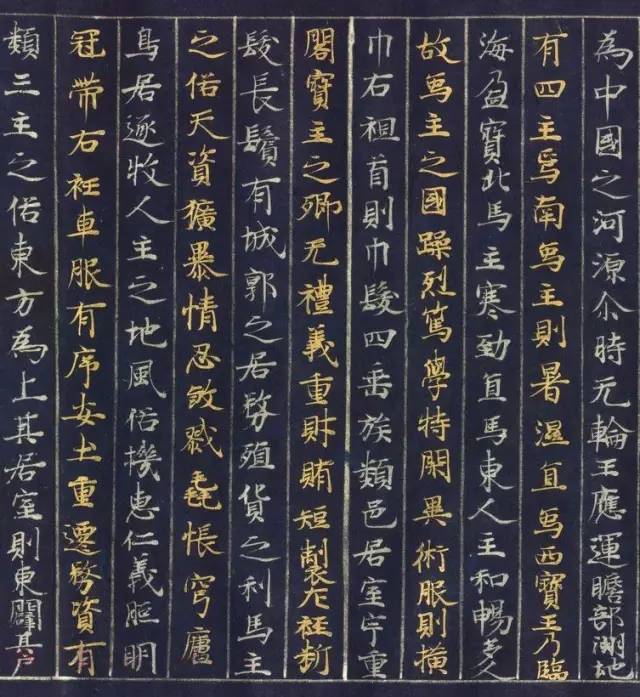 為中國之河源尒時无輪王應運瞻部洲地
有四主焉南象主則暑濕宜象西寶主乃臨
海盈寶北馬主寒勁宜馬東人主和暢多人
故象主之國躁烈篤學特閑異術服則橫
巾右袒首則巾髻四垂族類邑居室宇重
閣寶主之鄉无禮義重財賄短製左衽斷
髮長鬚有城郭之居務殖貨之利馬主
之俗天資獷暴情忍煞戮毳帳穹廬
鳥居逐牧人主之地風俗機惠仁義照明
冠帶右衽車服有序安土重遷務資有
類三主之俗東方為上其居室則東闢其戶